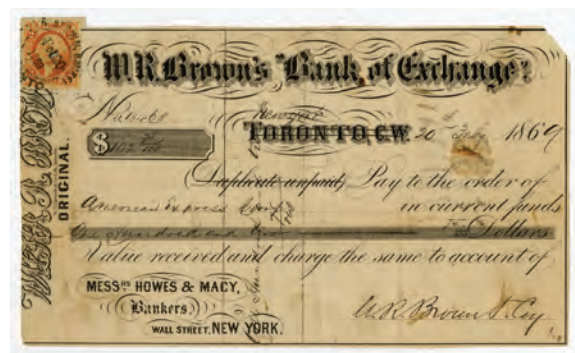 W.R. Brown's Bank of Exchange.
New York
TORONTO, C.W. 20 Feby 1869
$102
ORIGINAL.
(Duplicate unpaid) Pay to the order of
American Express Comp in current funds
One Hundred and two Dollars
Value received and charge the same to account of
MESSRS HOWES & MACY,
Bankers,
WALL STREET, NEW YORK.
W.R. Brown & Coy